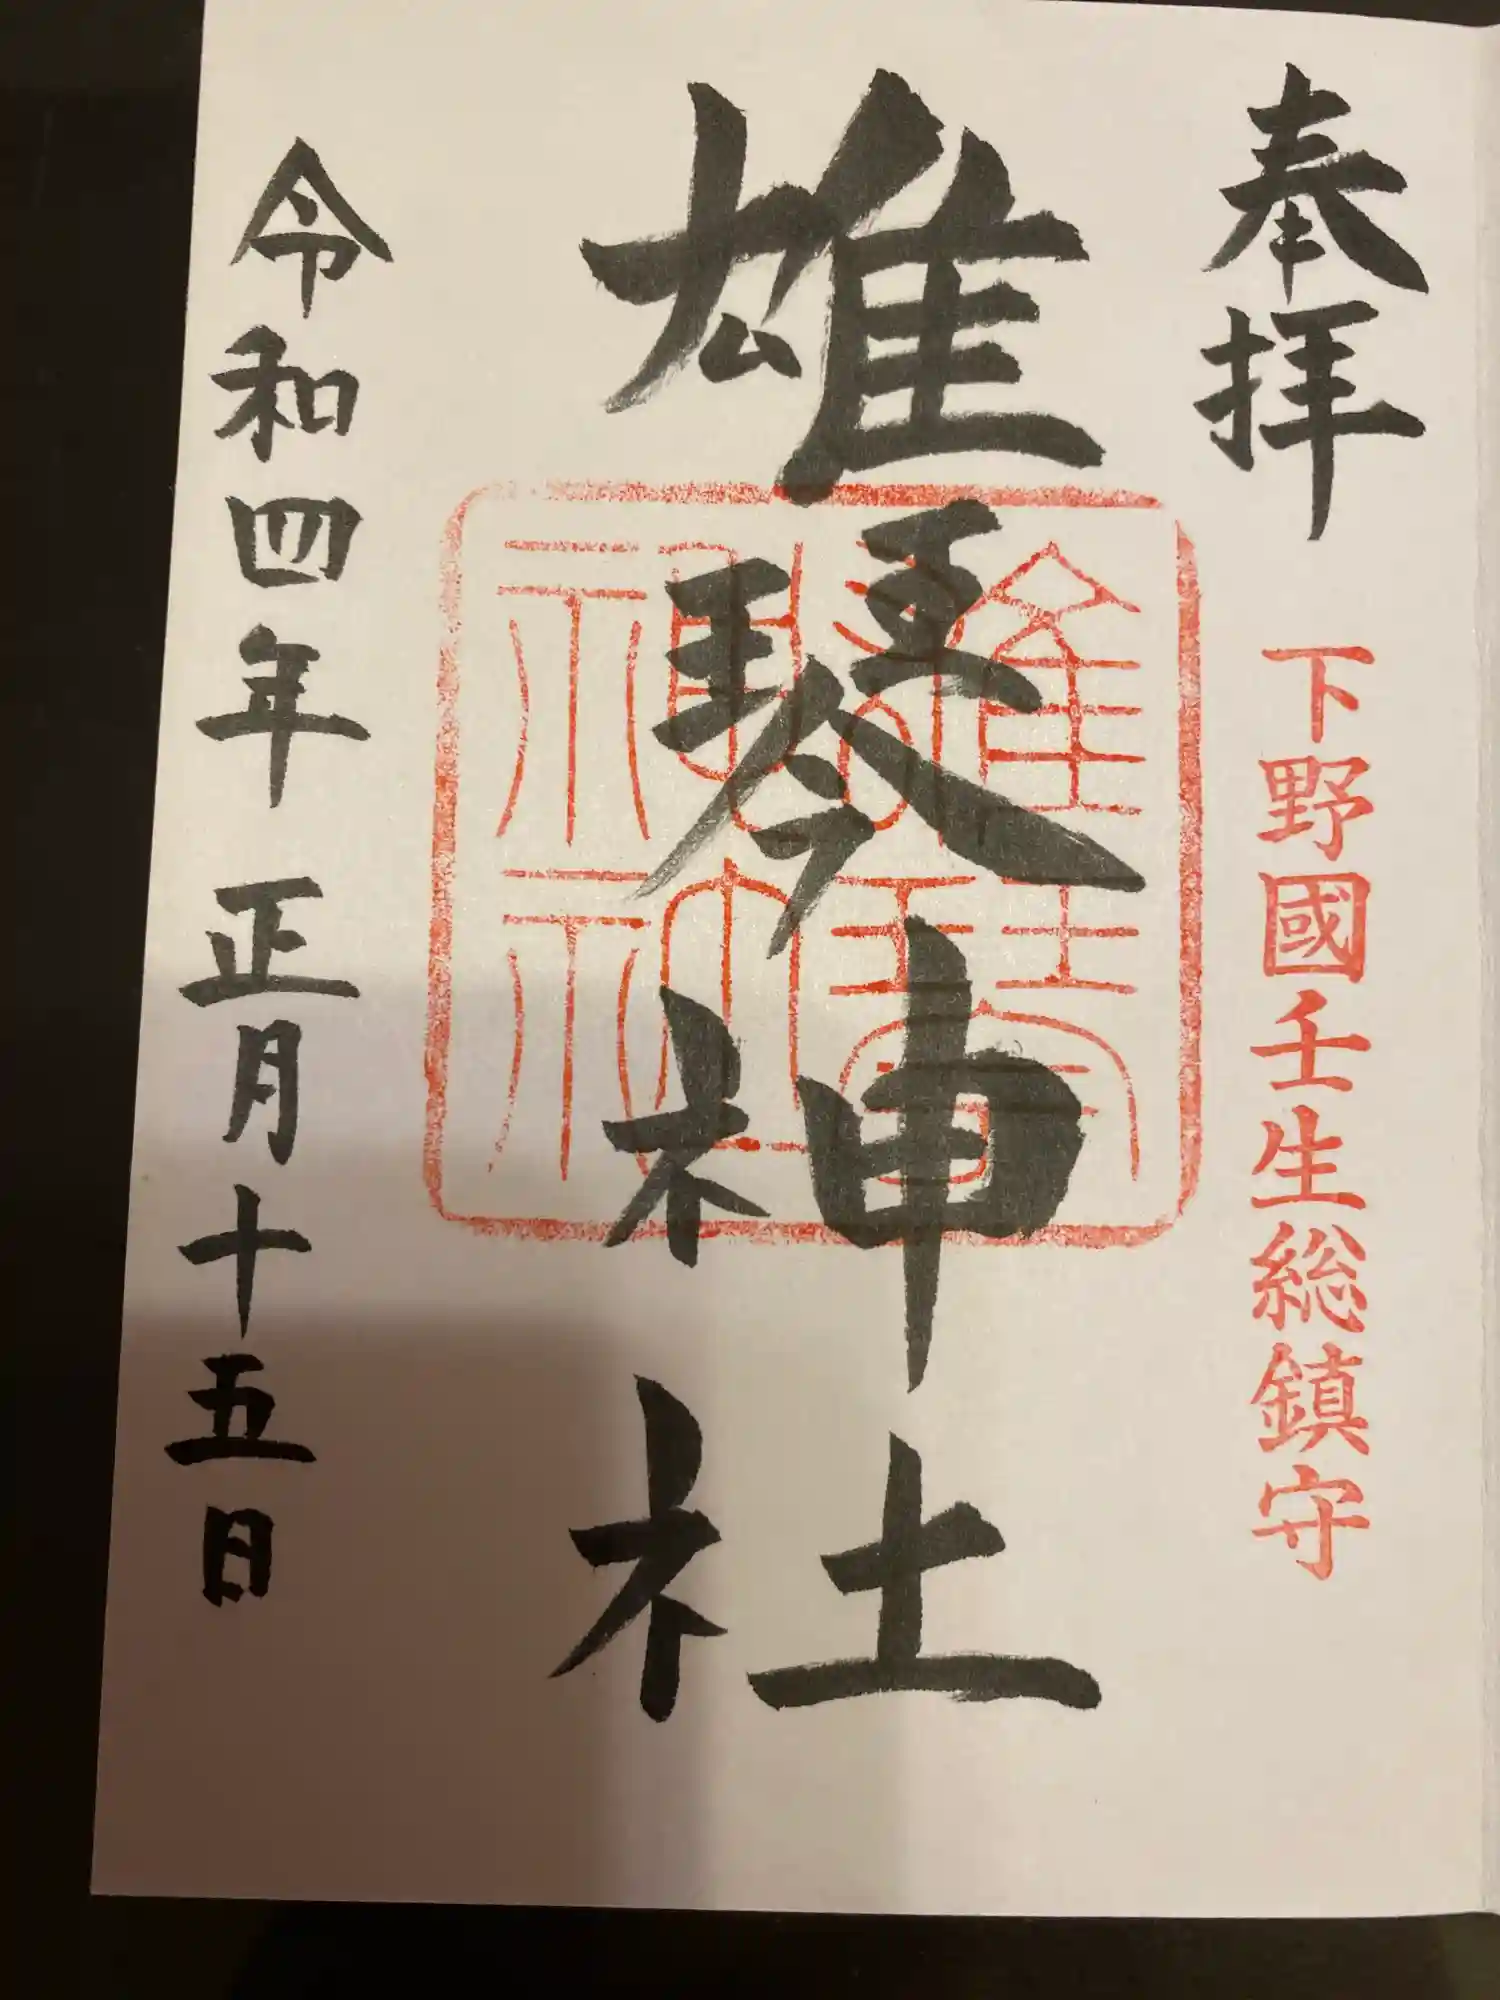 奉拝
下野國壬生総鎮守
雄琴神社
雄琴神社
令和四年正月十五日